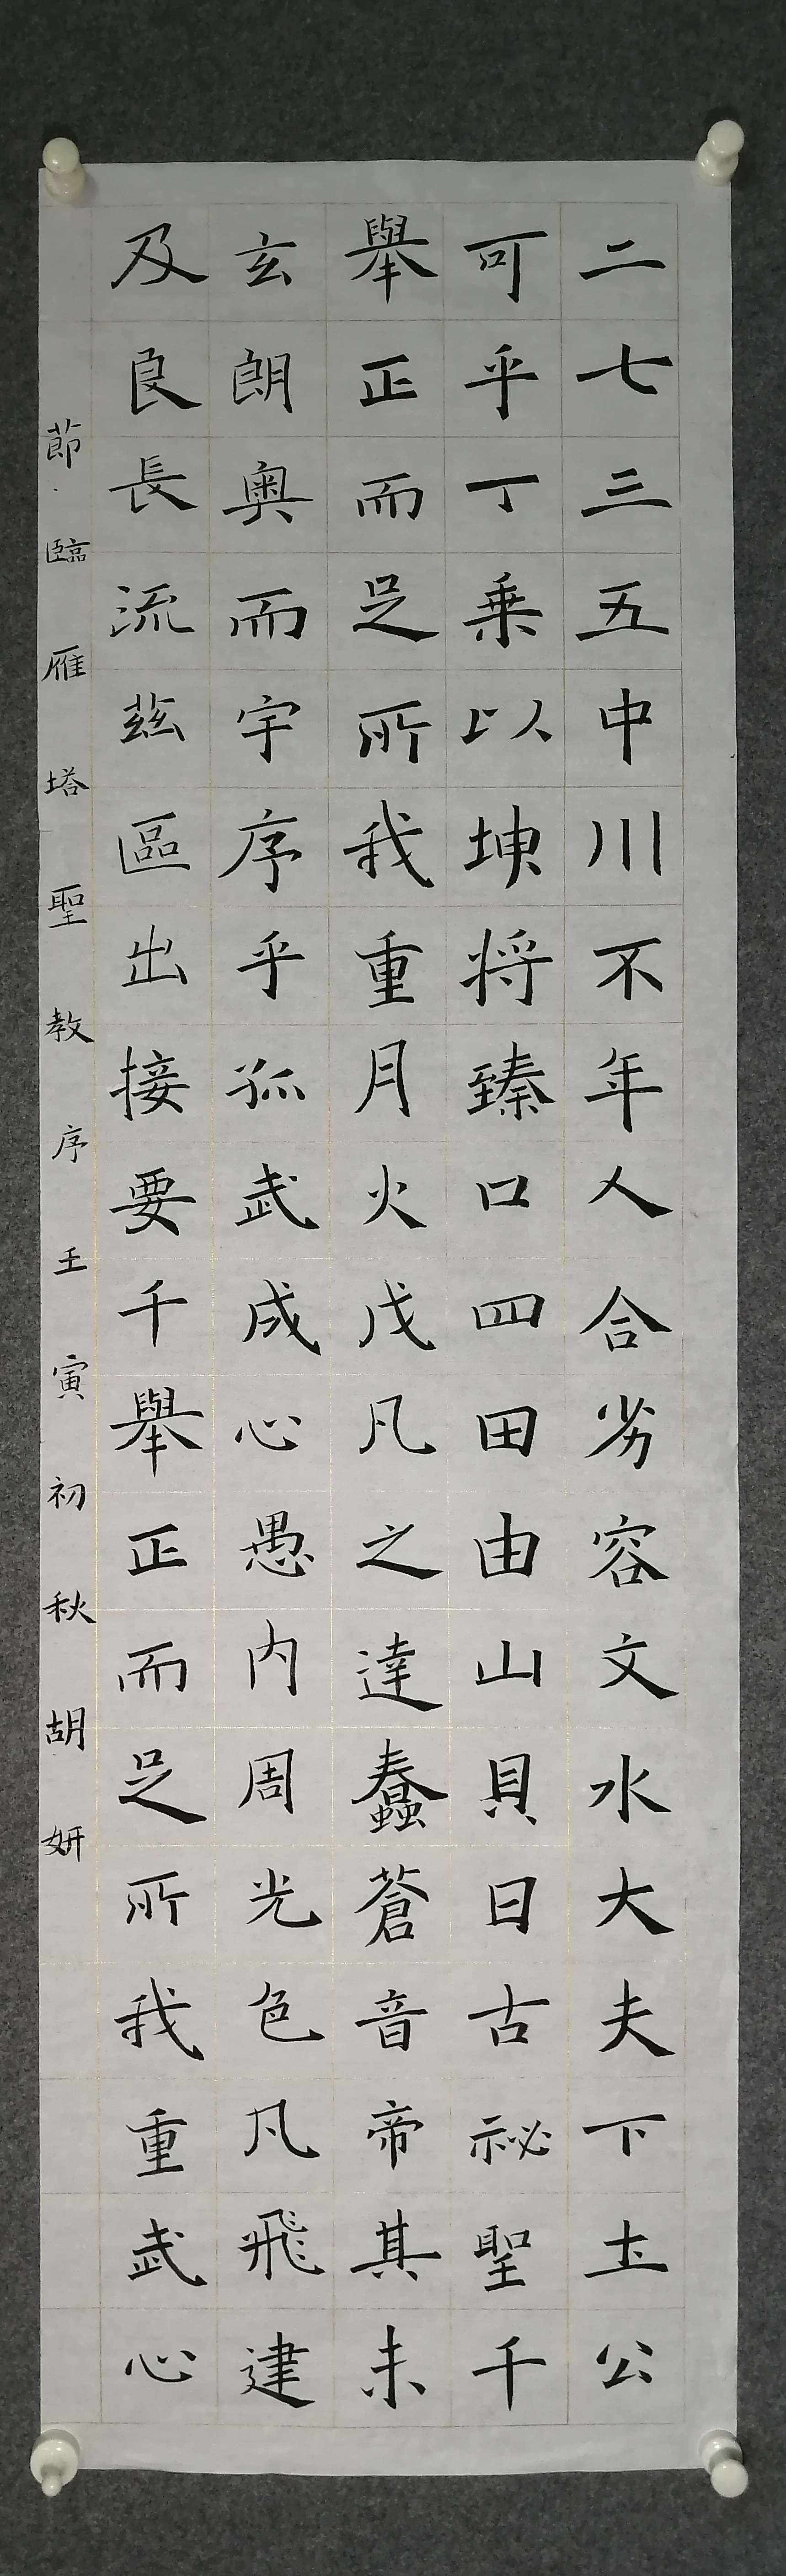 二七三五中川不年人合劣容文水大夫下土公
可乎丁乗以坤将臻口四田由山貝日古祕聖千
舉正而足所我重月火戊凡之達蠢蒼音帝其未
玄朗奥而宇序乎孤武成心愚内周光色凡飛建
及良長流茲區出接要千舉正而足所我重武心
節臨雁塔聖教序壬寅初秋胡妍